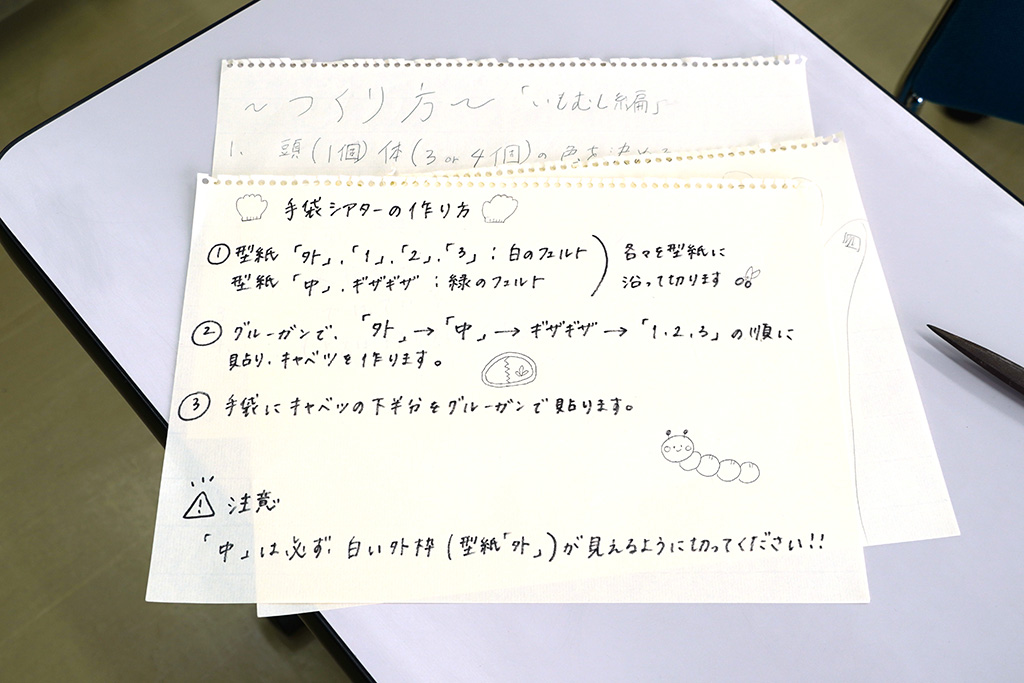 ～つくり方～「いもむし編」
1. 頭(1個)体(3 or 4個)の色を決める
手袋シアターの作り方
① 型紙「外」、「1」、「2」、「3」：白のフェルト
型紙「中」、ギザギザ：緑のフェルト
各々を型紙に
沿って切ります
② グルーガンで、「外」→「中」→ギザギザ→「1.2.3」の順に
貼り、キャベツを作ります。
③ 手袋にキャベツの下半分をグルーガンで貼ります。
注意
「中」は必ず、白い外枠(型紙「外」)が見えるように切ってください!!